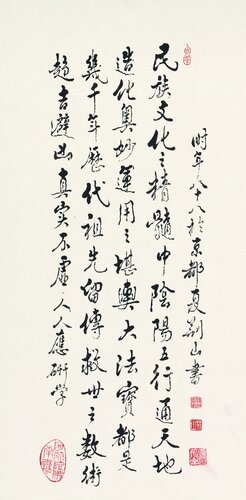 民族文化之精髓中陰陽五行通天地
造化奧妙運用之堪輿大法寶都是
幾千年歷代祖先留傳救世之數術
趨吉避凶真实不虛人人應研学
時年八十八於京都夏荆山書